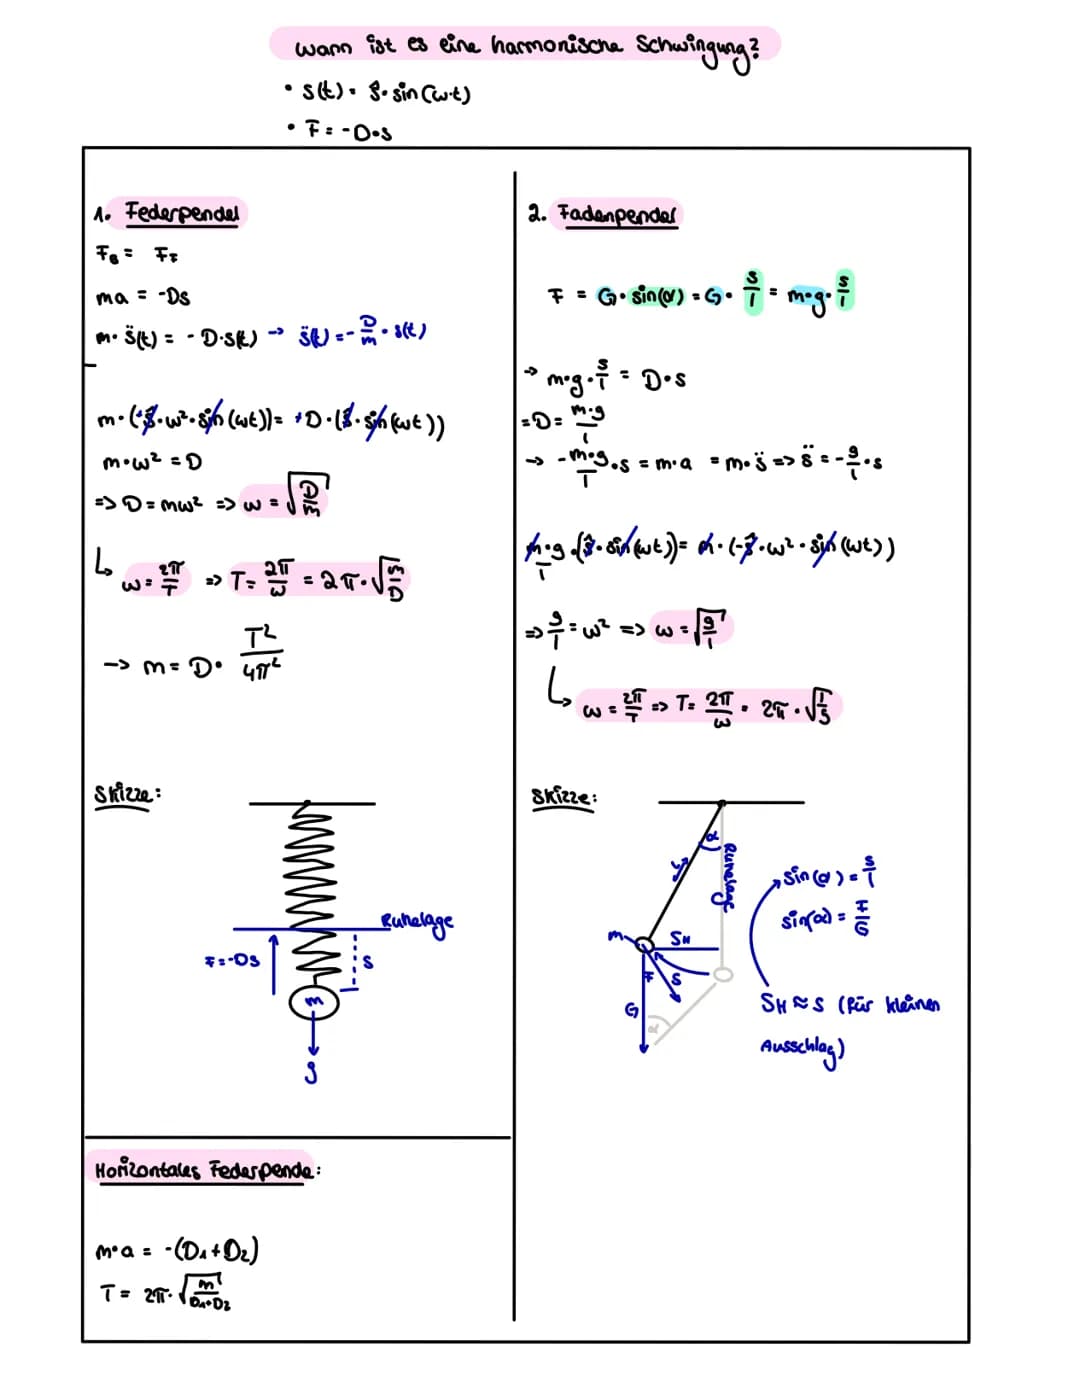 Wann ist es eine harmonische Schwingung?
• s(t) = ŝ · sin(ω·t)
• F = -D·s
1. Federpendel
F_B = F_F
ma = -Ds
m · s̈(t) = -D·s(t) → s̈(t) = -D/m · s(t)
m · (+ŝ·ω²·sin(ωt)) = +D·(ŝ·sin(ωt))
m·ω² = D
=> D = mω² => ω = √(D/m)
↳ ω = 2π/T => T = 2π/ω = 2π·√(m/D)
→ m = D · T²/4π²
Skizze:
Ruhelage
F=-Ds
s
m
g
Horizontales Federpende:
m·a = -(D₁+D₂)
T = 2π·√(m/(D₁+D₂))
2. Fadenpendel
F = G·sin(α) = G·s/l = m·g·s/l
→ m·g·s/l = D·s
=D= m·g/l
→ -m·g/l·s = m·a = m·s̈ => s̈ = -g/l·s
m·g/l·(ŝ·sin(ωt)) = m·(-ŝ·ω²·sin(ωt))
=> g/l = ω² => ω = √(g/l)
↳ ω = 2π/T => T = 2π/ω = 2π·√(l/g)
Skizze:
α
Ruhelage
m
S_H
F
s
G
α
sin(α) = s/l
sin(α) = F/G
S_H ≈ s (für kleinen
Ausschlag)